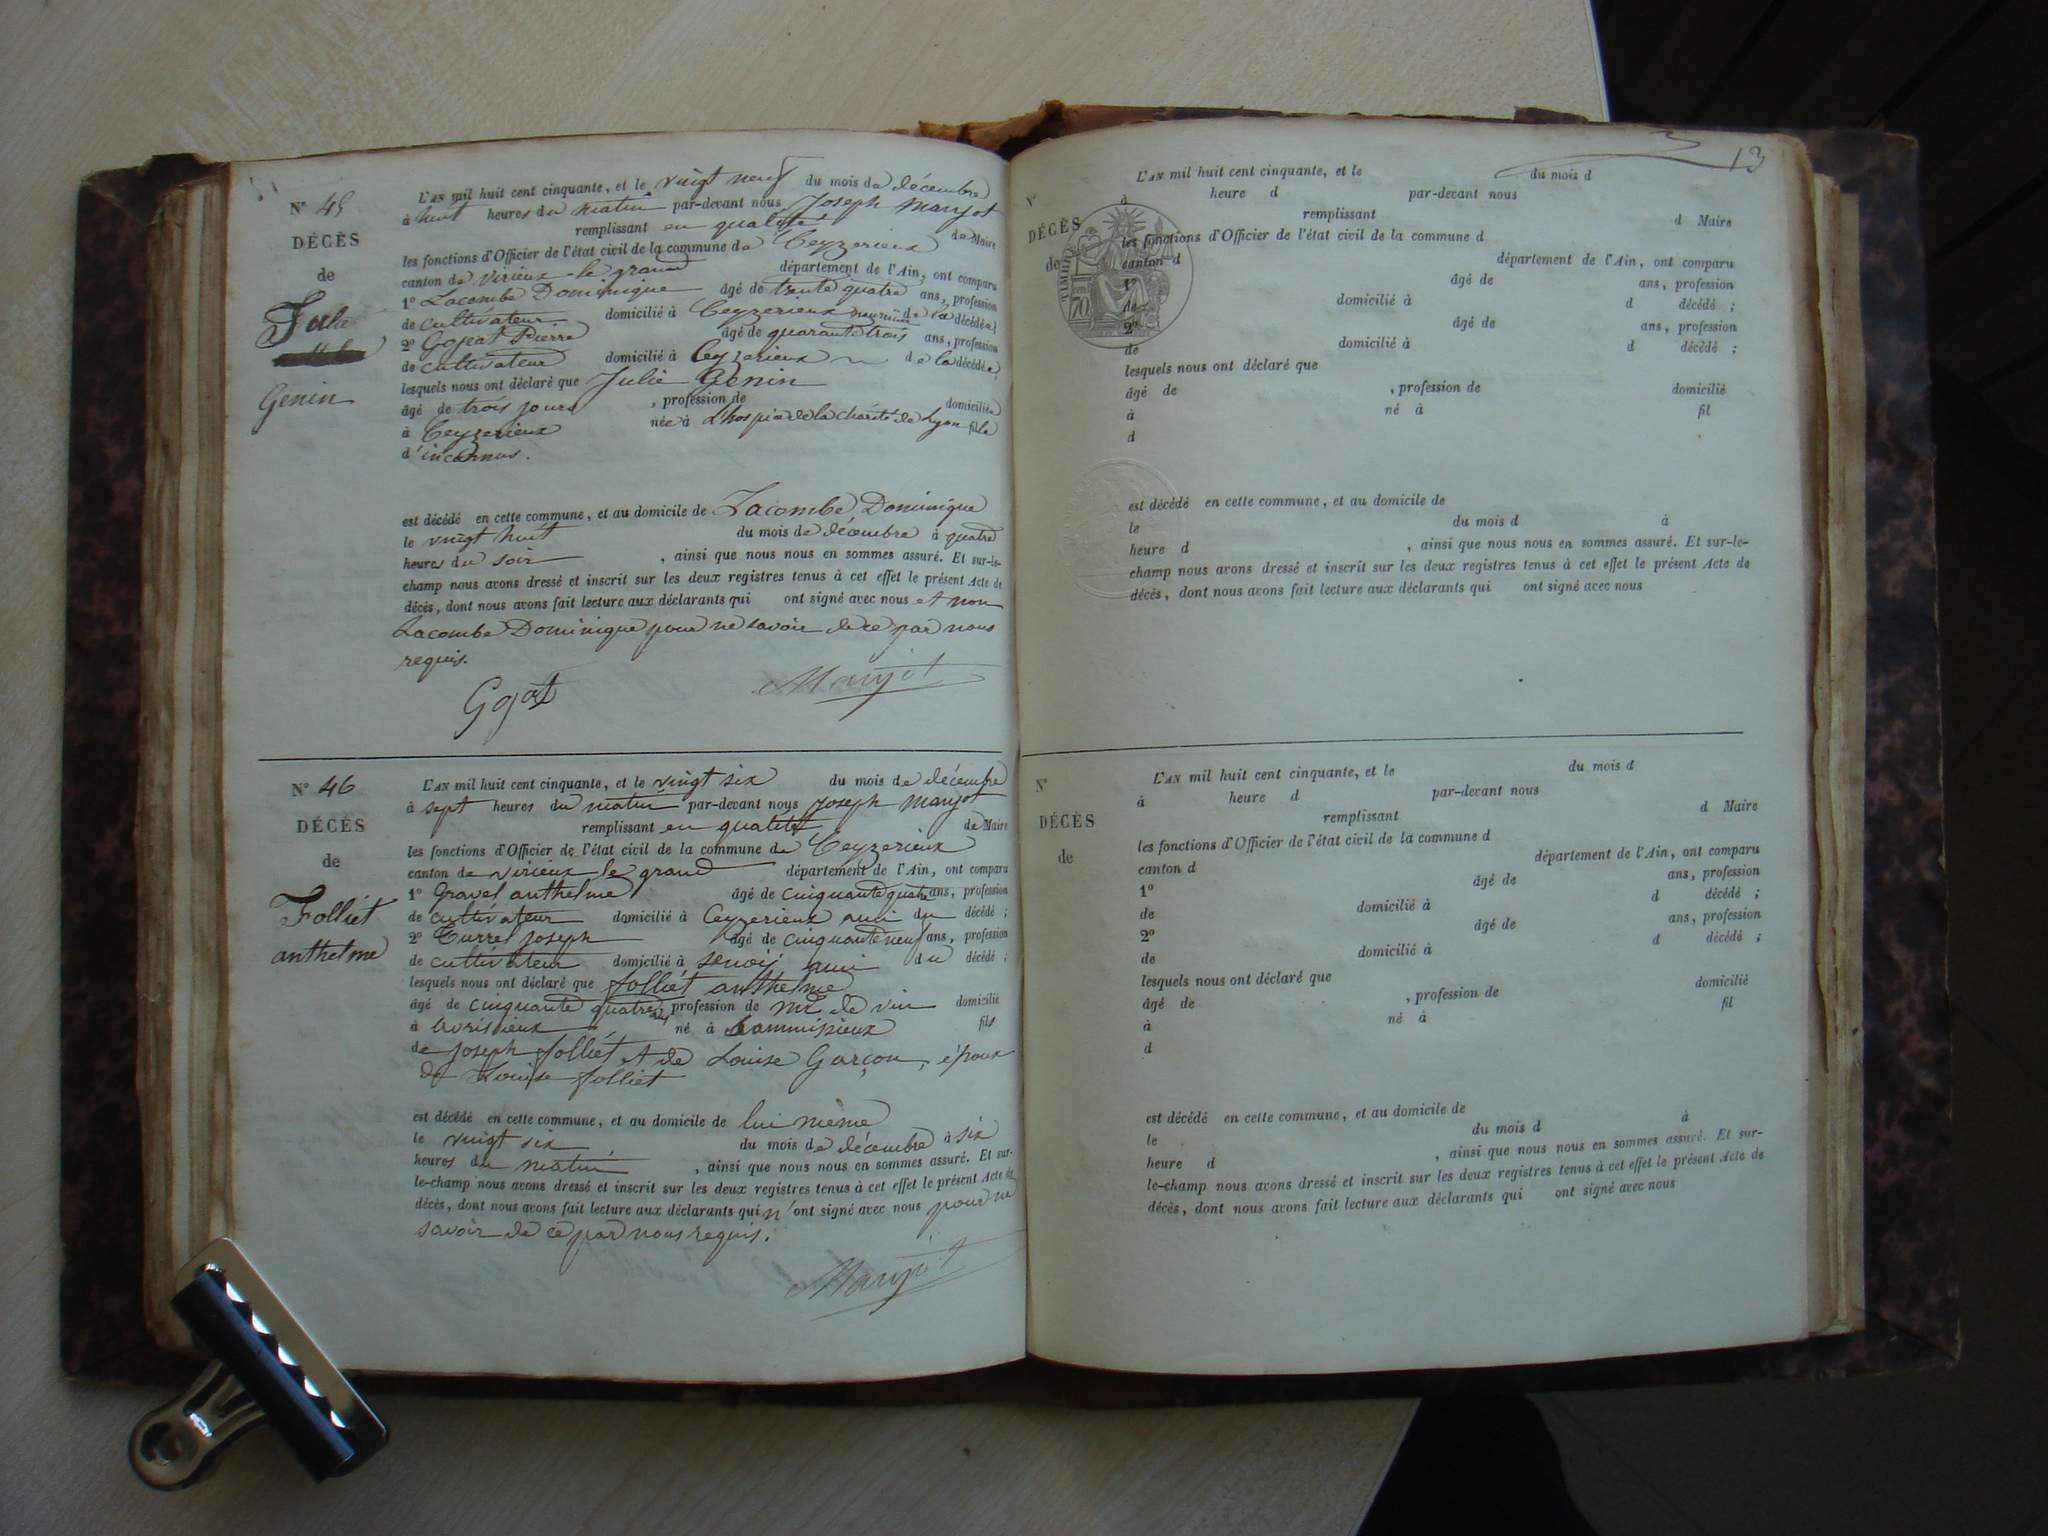 N° 45
DÉCÈS
de
Julie
Genin
L'AN mil huit cent cinquante, et le vingt neuf du mois de décembre
à huit heures du matin par-devant nous Joseph Marjot
remplissant en qualité de Maire
les fonctions d'Officier de l'état civil de la commune de Ceyzerieux
canton de virieux-le-grand département de l'Ain, ont comparu
1° Lacombe Dominique âgé de trente quatre ans, profession
de cultivateur domicilié à Ceyzerieux de la décédée;
2° Gojat Pierre âgé de quarante trois ans, profession
de cultivateur domicilié à Ceyzerieux de la décédée;
lesquels nous ont déclaré que Julie Genin
âgé de trois jours , profession de domiciliée
à Ceyzerieux née à L'hospice de la charité de Lyon fille
d'inconnus.
est décédé en cette commune, et au domicile de Lacombe Dominique
le vingt huit du mois de décembre à quatre
heures du soir , ainsi que nous nous en sommes assuré. Et sur-le-
champ nous avons dressé et inscrit sur les deux registres tenus à cet effet le présent Acte de
décès, dont nous avons fait lecture aux déclarants qui ont signé avec nous et non
Lacombe Dominique pour ne savoir de ce par nous
requis.
Gojat Marjot
N° 46
DÉCÈS
de
Folliét
anthelme
L'AN mil huit cent cinquante, et le vingt six du mois de décembre
à sept heures du matin par-devant nous Joseph Marjot
remplissant en qualité de Maire
les fonctions d'Officier de l'état civil de la commune de Ceyzerieux
canton de virieux le grand département de l'Ain, ont comparu
1° Gravel anthelme âgé de cinquante quatre ans, profession
de cultivateur domicilié à Ceyzerieux ami du décédé;
2° Turrel joseph âgé de cinquante neuf ans, profession
de cultivateur domicilié à ami du décédé;
lesquels nous ont déclaré que folliét anthelme
âgé de cinquante quatre profession de md de vin domicilié
à né à fils
de joseph folliét et de Louise Garçon, époux
de Louise folliét
est décédé en cette commune, et au domicile de lui même
le vingt six du mois de décembre à six
heures du matin , ainsi que nous nous en sommes assuré. Et sur-
le-champ nous avons dressé et inscrit sur les deux registres tenus à cet effet le présent Acte de
décès, dont nous avons fait lecture aux déclarants qui n'ont signé avec nous pour ne
savoir de ce par nous requis.
Marjot
13
N°
DÉCÈS
de
TIMBRE
70
L'AN mil huit cent cinquante, et le du mois d
à heure d par-devant nous
remplissant d Maire
les fonctions d'Officier de l'état civil de la commune d
canton d département de l'Ain, ont comparu
1° âgé de ans, profession
de domicilié à d décédé;
2° âgé de ans, profession
de domicilié à d décédé;
lesquels nous ont déclaré que
âgé de , profession de domicilié
à né à fil
d
est décédé en cette commune, et au domicile de
le du mois d à
heure d , ainsi que nous nous en sommes assuré. Et sur-le-
champ nous avons dressé et inscrit sur les deux registres tenus à cet effet le présent Acte de
décès, dont nous avons fait lecture aux déclarants qui ont signé avec nous
N°
DÉCÈS
de
L'AN mil huit cent cinquante, et le du mois d
à heure d par-devant nous
remplissant d Maire
les fonctions d'Officier de l'état civil de la commune d
canton d département de l'Ain, ont comparu
1° âgé de ans, profession
de domicilié à d décédé;
2° âgé de ans, profession
de domicilié à d décédé;
lesquels nous ont déclaré que
âgé de , profession de domicilié
à né à fil
d
est décédé en cette commune, et au domicile de
le du mois d à
heure d , ainsi que nous nous en sommes assuré. Et sur-
le-champ nous avons dressé et inscrit sur les deux registres tenus à cet effet le présent Acte de
décès, dont nous avons fait lecture aux déclarants qui ont signé avec nous